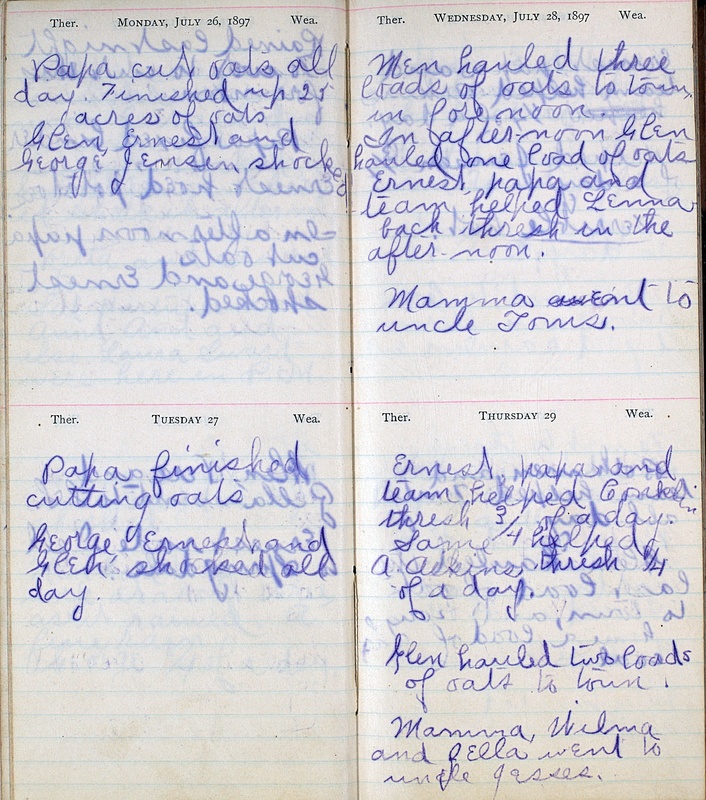 Ther. MONDAY, JULY 26, 1897 Wea.
Papa cut oats all
day. Finished up 25
acres of oats
Glen Ernest and
George Jemsin shocked
Ther. TUESDAY 27 Wea.
Papa finished
cutting oats
George Ernest and
Glen shocked all
day.
Ther. WEDNESDAY, JULY 28, 1897 Wea.
Men hauled three
loads of oats to town
in forenoon.
In after-noon Glen
hauled one load of oats
Ernest, papa and
team helped Lenna-
back thresh in the
after-noon.
Mamma went to
uncle Toms.
Ther. THURSDAY 29 Wea.
Ernest, papa and
team helped Conklin
thresh 3/4 of a day.
Same helped
A. thresh 1/4
of a day.
Glen hauled two loads
of oats to town.
Mamma, Wilma
and Della went to
uncle Jesses.